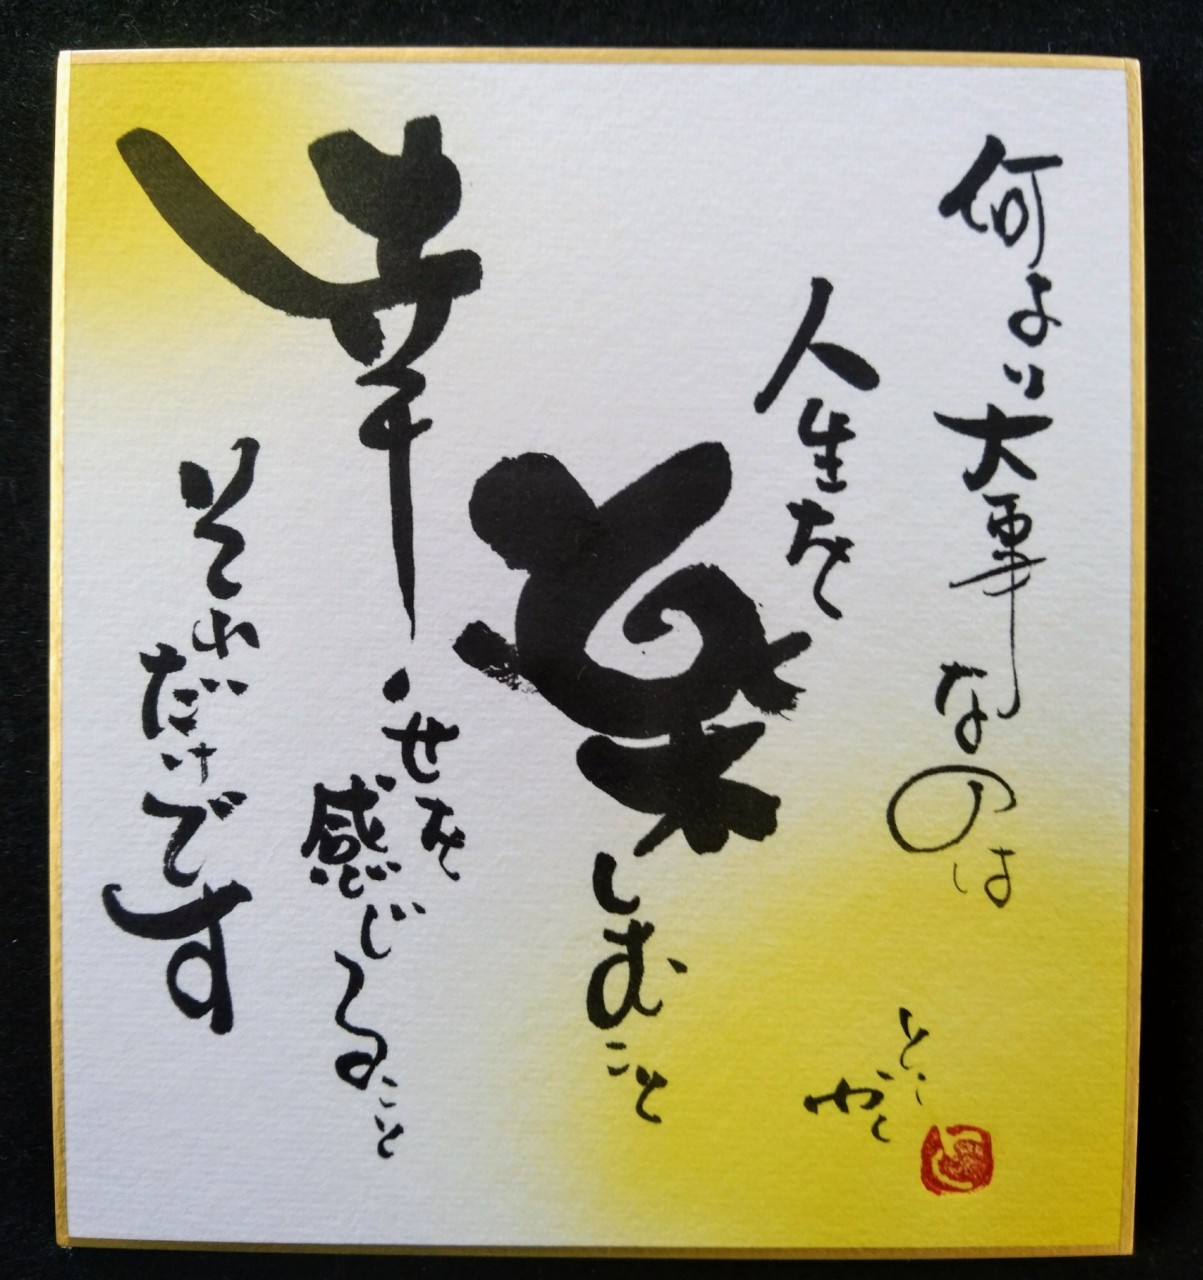 何より大事なのは
人生を
楽しむこと
幸せを
感じること
それだけです